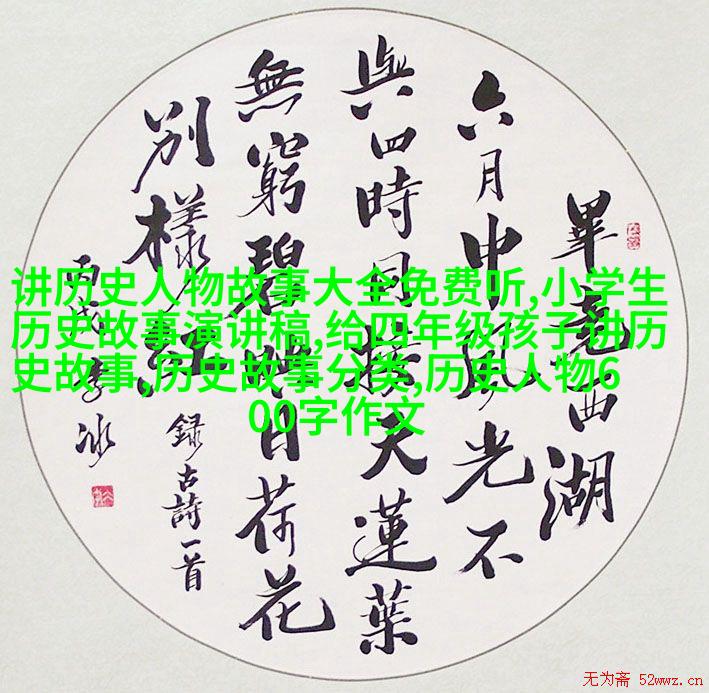 畢竟西湖
六月中風光不
與四時同接天蓮葉
無窮碧映日荷花
別樣紅
錄古詩一首
丙戌李冰
讲历史人物故事大全免费听,小学生
历史故事演讲稿,给四年级孩子讲历
史故事,历史故事分类,历史人物6
00字作文
无为斋 52wwz.cn